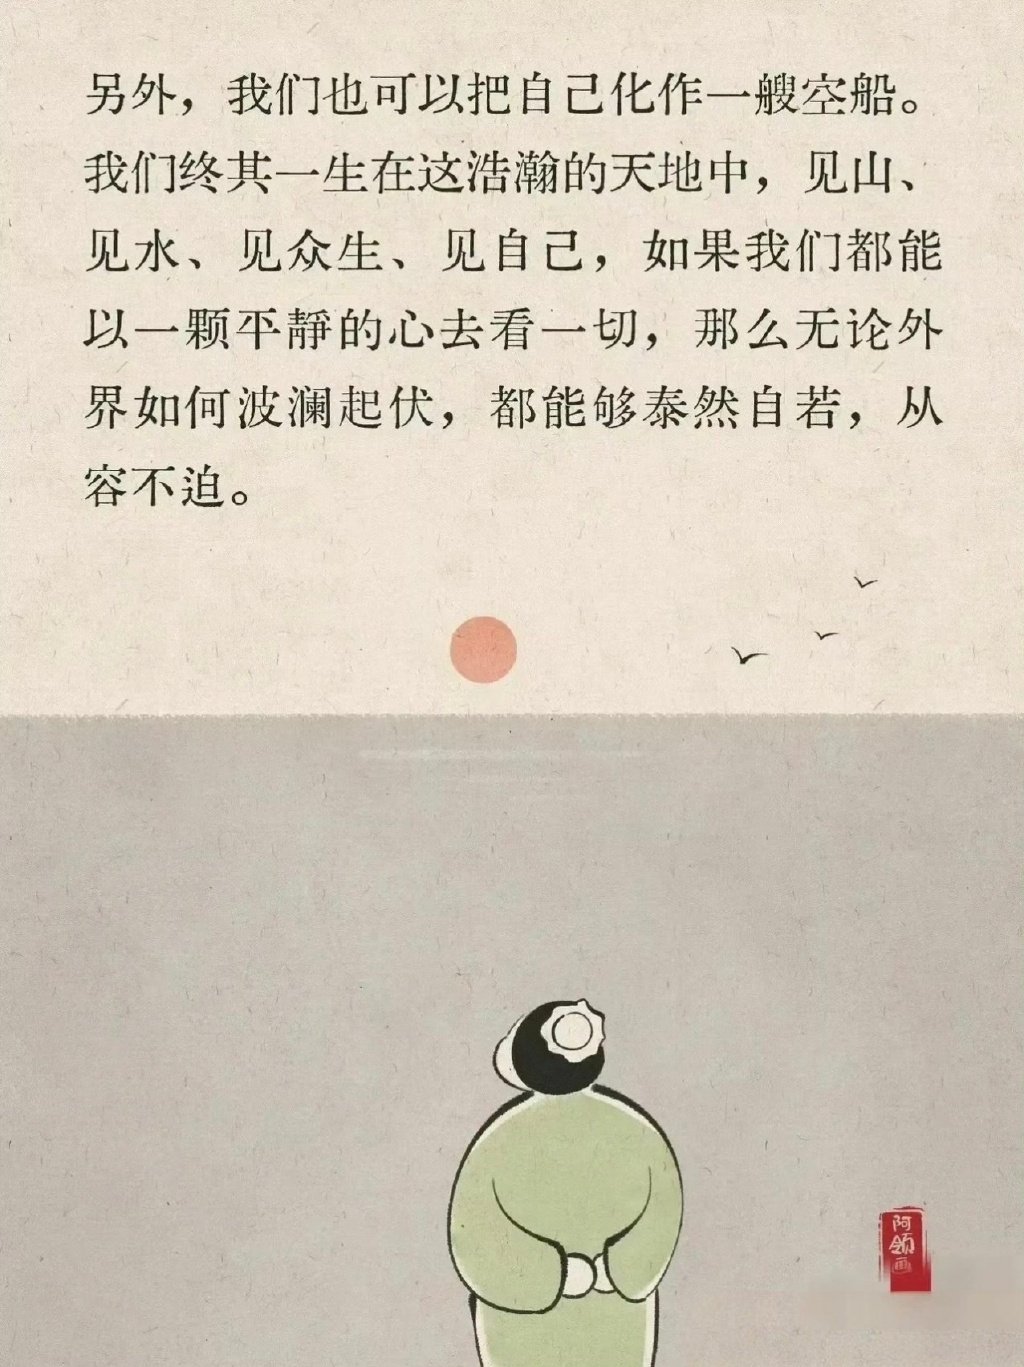 另外，我们也可以把自己化作一艘空船。
我们终其一生在这浩瀚的天地中，见山、
见水、见众生、见自己，如果我们都能
以一颗平静的心去看一切，那么无论外
界如何波澜起伏，都能够泰然自若，从
容不迫。
阿
领
画